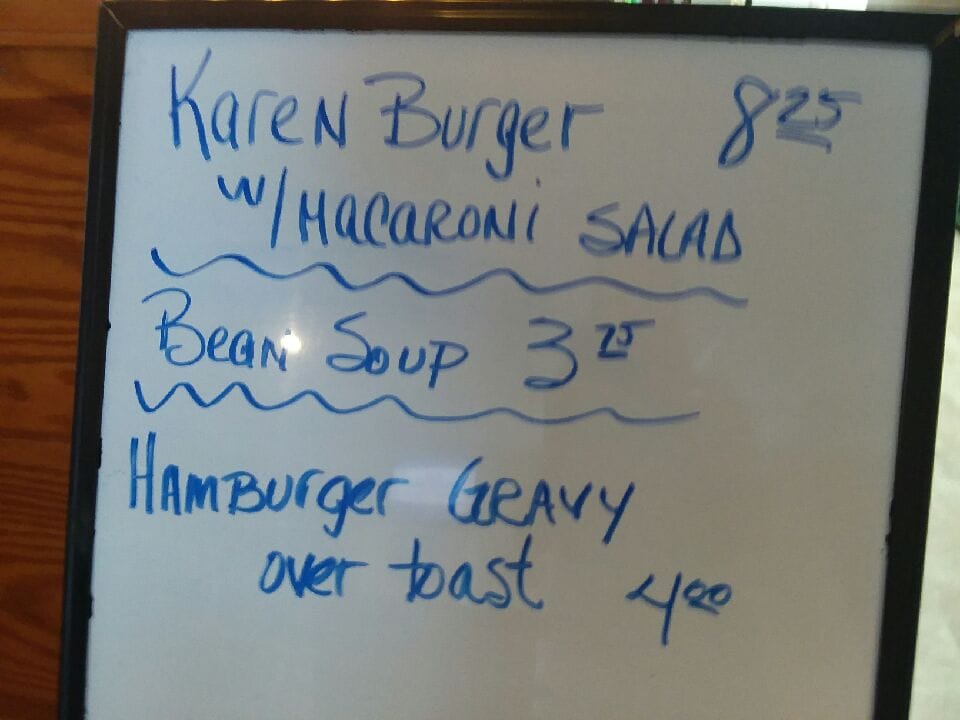 Karen Burger 8 25
w/Macaroni Salad
Bean Soup 3 25
Hamburger Gravy
over toast 4 00